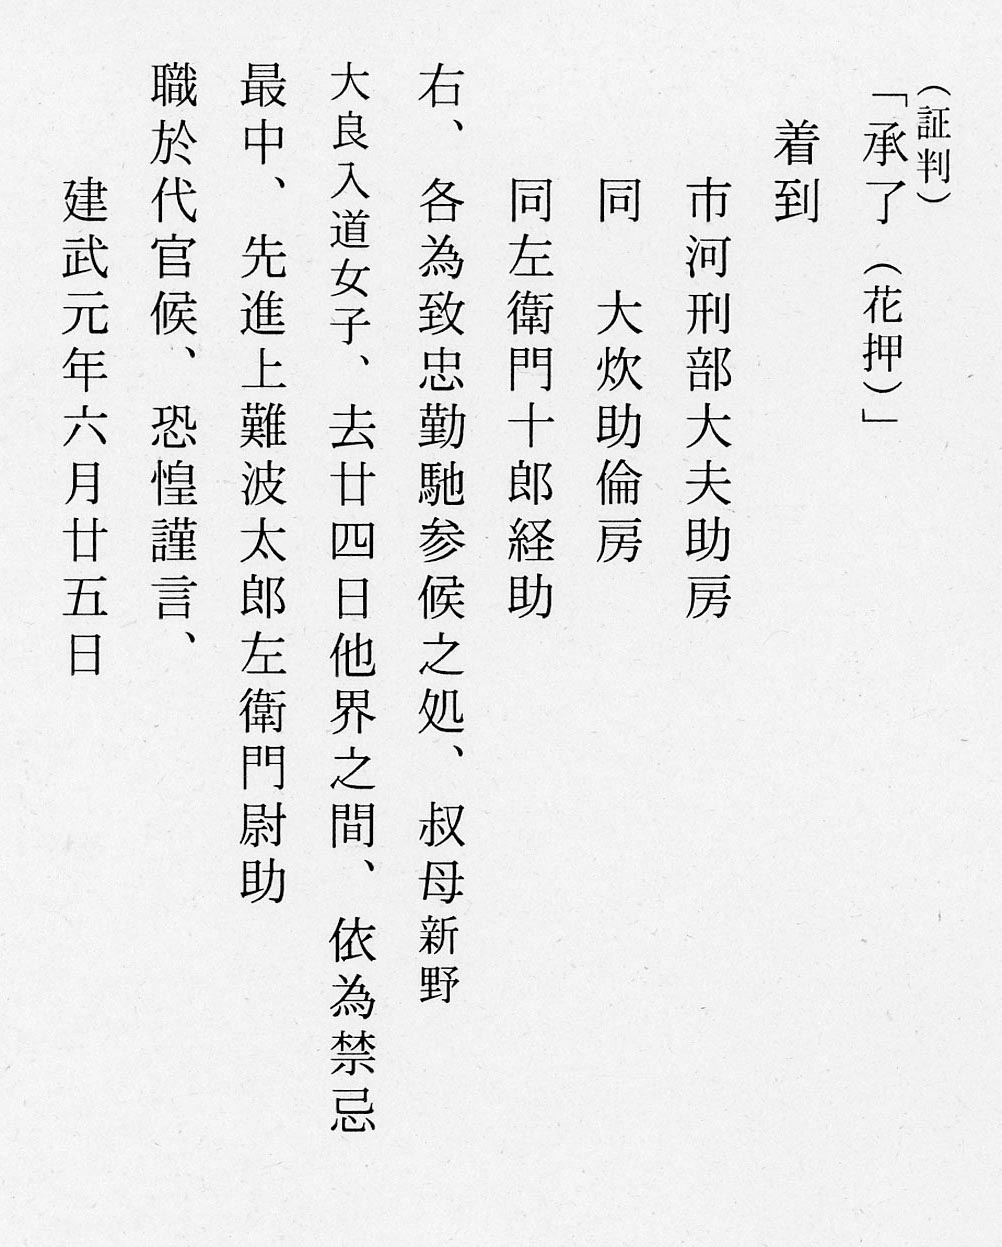 （証判）
「承了（花押）」
着到
市河刑部大夫助房
同　大炊助倫房
同左衛門十郎経助
右、各為致忠勤馳参候之処、叔母新野
大良入道女子、去廿四日他界之間、依為禁忌
最中、先進上難波太郎左衛門尉助
職於代官候、恐惶謹言、
建武元年六月廿五日